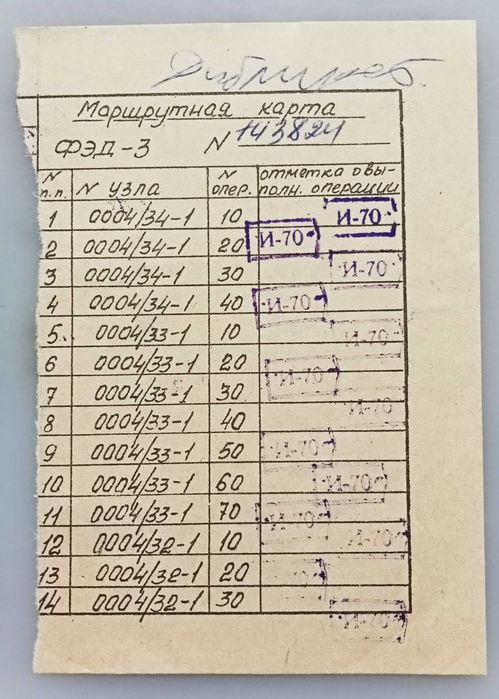 Дубликат
Маршрутная карта
ФЭД-3 N 143824
N п.п. N узла N опер. отметка о вы-
полн. операции
1 0004/34-1 10 И-70
2 0004/34-1 20 И-70
3 0004/34-1 30 И-70
4 0004/34-1 40 И-70
5. 0004/33-1 10 И-70
6 0004/33-1 20 И-70
7 0004/33-1 30 И-70
8 0004/33-1 40
9 0004/33-1 50 И-70
10 0004/33-1 60 И-70
11 0004/33-1 70 И-70
12 0004/32-1 10 И-70
13 0004/32-1 20 -70
14 0004/32-1 30 И-70